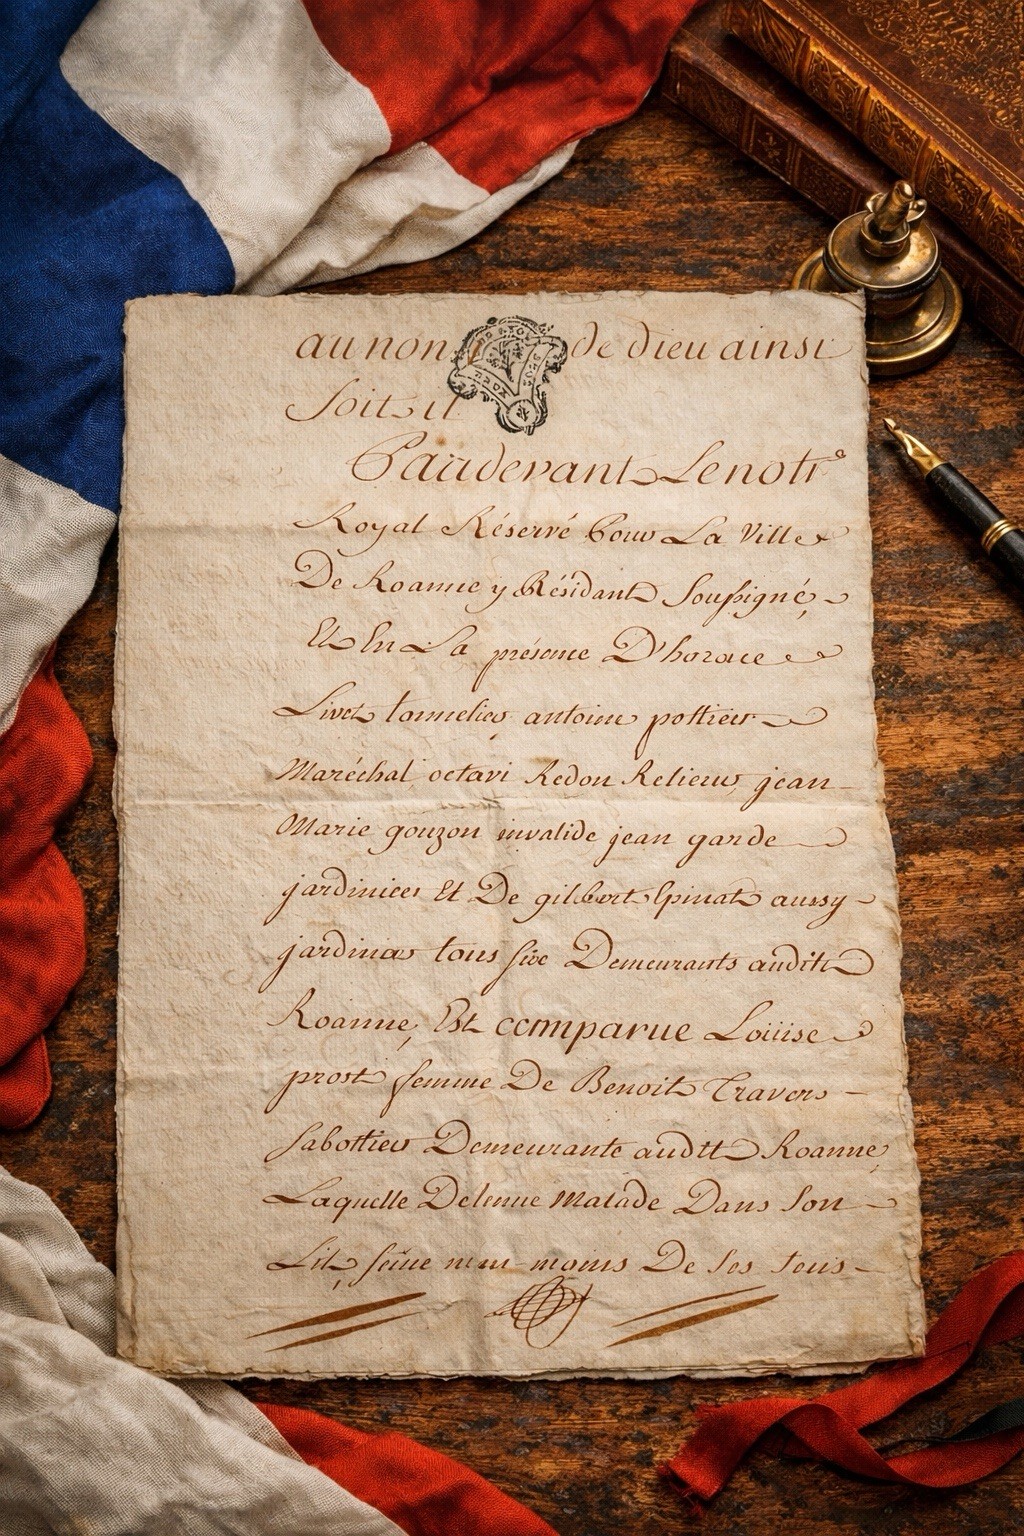 au nom de dieu ainsi
Soit il
Pardevant Le nott.e
Royal Réservé Pour La Ville
De Roanne y Résidant Soussigné,
Et En La présence D'horace
Livet tonnelier, antoine pottier
Maréchal, octavi Redon Relieur, jean
Marie gouzon invalide jean garde
jardinier Et De gilbert Epinat aussy
jardinier tous six Demeurants audit
Roanne, Est comparue Loüise
prost femme De Benoit Travers
Sabottier Demeurante audit Roanne,
Laquelle Detenue Malade Dans Son
Lit, Seine moins De Ses Sens